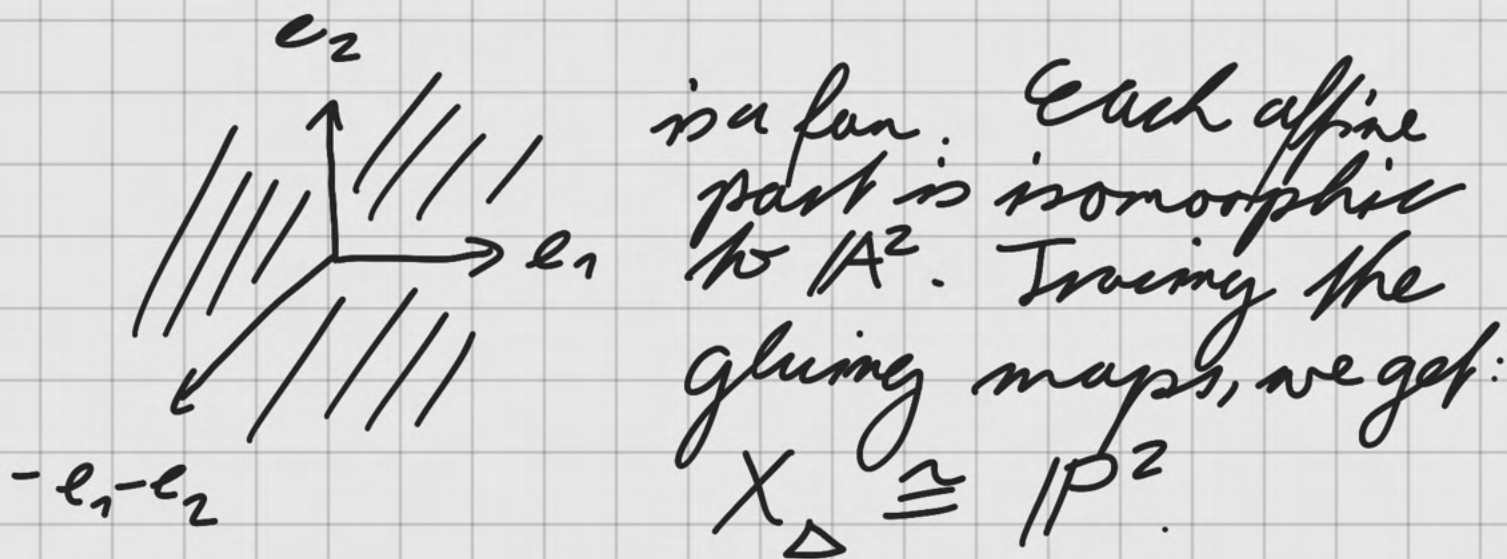 e₂
e₁
-e₁-e₂
is a fan. Each affine
part is isomorphic
to 𝔸². Tracing the
gluing maps, we get:
X_Δ ≅ ℙ².